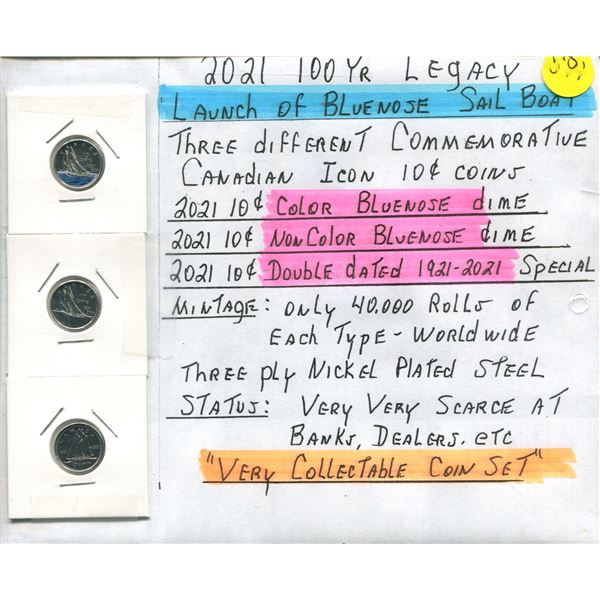 2021 100 Yr Legacy
Launch of Bluenose Sail Boat
Three different Commemorative
Canadian Icon 10¢ coins
2021 10¢ Color Bluenose dime
2021 10¢ NonColor Bluenose dime
2021 10¢ Double dated 1921-2021 Special
Mintage: only 40.000 Rolls of
Each Type - Worldwide
Three ply Nickel Plated Steel
Status: Very Very Scarce at
Banks, Dealers. etc
"Very Collectable Coin Set"